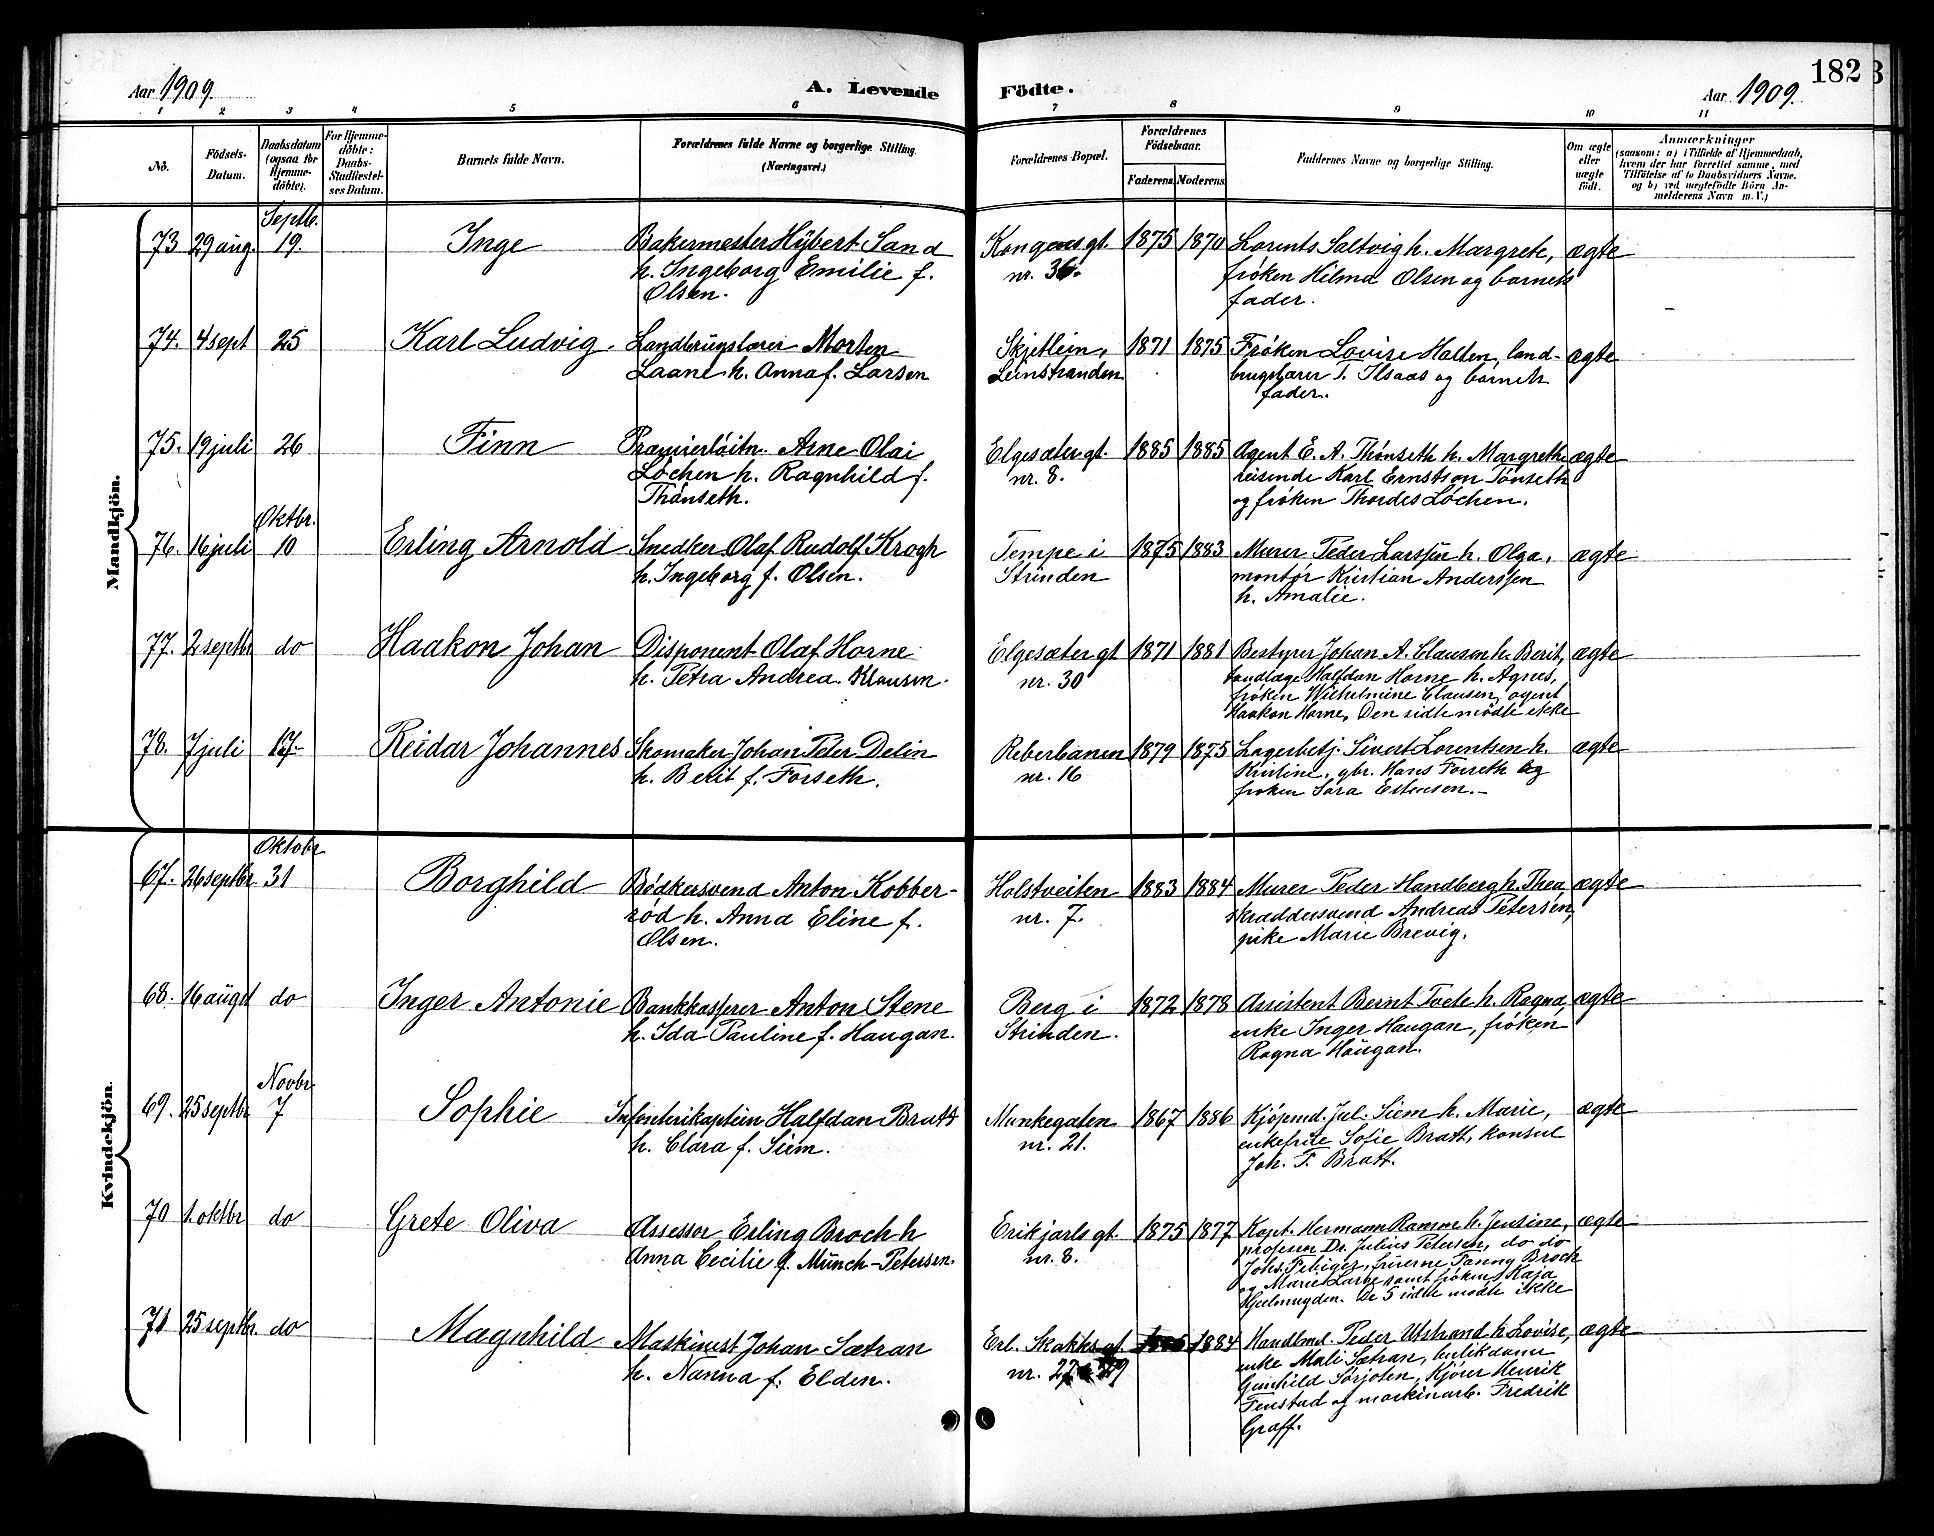 182
3
Aar 1909.
A. Levende Födte.
Aar 1909.
1 2 3 4 5 6 7 8 9 10 11
No.
Födsels-
Datum.
Daabsdatum
(ogsaa for
Hjemme-
döbte).
For Hjemme-
döbte:
Daabs-
Stadfæstel-
ses Datum.
Barnets fulde Navn.
Forældrenes fulde Navne og borgerlige Stilling.
(Næringsvei.)
Forældrenes Bopæl.
Forældrenes
Födselsaar.
Faderens. Moderens.
Faddernes Navne og borgerlige Stilling.
Om ægte
eller
uægte
födt.
Anmærkninger
(saasom: a) i Tilfælde af Hjemmedaab,
hvem der har forrettet samme, med
Tilföielse af to Daabsvidners Navne.
og b) ved uægtefödte Börn An-
melderens Navn m. V.)
Mandkjön.
Septb.
73 29 aug. 19. Inge Bakermester Hÿbert Sand Kongensgt. 1875 1870 Lorents Saltvig h. Margrete, ægte
h. Ingeborg Emilie f. nr. 36. frøken Hilma Olsen og barnets
Olsen. fader.
74. 4 sept 25 Karl Ludvig. Landbrugslærer Morten Skjetlein, 1871 1875 Frøken Lovise Halten, land- ægte
Laane h. Anna f. Larsen Leinstranden brugslærer T. Ilsaas og barnets
fader.
75. 19 juli 26 Finn Præmierløitn. Arne Olai Elgesæter gt. 1885 1885 Agent E. A. Thønseth h. Margrethe ægte
Løchen h. Ragnhild f. nr. 8. reisende Karl Ernstson Tønseth
Thønseth. og frøken Thordes Løchen.
Oktbr.
76. 16 juli 10 Erling Arnold Snedker Olaf Rudolf Krogh Tempe i 1875 1883 Murer Peder Larssen h. Olga, ægte
h. Ingeborg f. Olsen. Strinden montør Kristian Anderssen
h. Amalie.
77. 2 septbr do Haakon Johan Disponent Olaf Horne Elgesæter gt 1871 1881 Bestyrer Johan A. Clausen h. Berit, ægte
h. Petra Andrea Klausen. nr. 30 tandlæge Halfdan Horne h. Agnes,
frøken Wilhelmine Clausen, agent
Haakon Horne. Den sidte mødte ikke
78. 7 juli 17. Reidar Johannes Skomaker Johan Peter Delin Reberbanen 1879 1875 Lagerbetj. Sivert Lorentsen h. ægte
h. Berit f. Forseth. nr. 16 Kristine, gbr. Hans Forseth og
frøken Sara Estensen.
Kvindekjön.
Oktobr
67. 26 septbr 31 Borghild Bødkersvend Anton Kobber- Holstveiten 1883 1884 Murer Peder Handberg h. Thea, ægte
rød h. Anna Eline f. nr. 7. skræddersvend Andreas Petersen,
Olsen. pike Marie Brevig.
68. 16 augst do Inger Antonie Bankkasserer Anton Stene Berg i 1872 1878 Assistent Bernt Tvete h. Ragna, ægte
h. Ida Pauline f. Haugan. Strinden. enke Inger Haugan, frøken
Ragna Haugan.
Novbr.
69. 25 septbr 7 Sophie Infanterikaptein Halfdan Bratt Munkegaten 1867 1886 Kjøpmd. Jul. Siem h. Marie, ægte
h. Clara f. Siem. nr. 21. enkefrue Sofie Bratt, konsul
Joh. F. Bratt.
70 1. oktbr do Grete Oliva Assessor Erling Broch h Erik jarls gt. 1875 1877 Kapt. Hermann Ramm h. Jensine, ægte
Anna Cecilie f. Münch-Petersen. nr. 8. professor Dr. Julius Petersen, do do
Johs. Fibiger, fruerne Fanny Broch
og Marie Larve samt frøken Kaja
Hjelmugden. De 5 sidte mødte ikke
71 25 septbr. do Magnhild Maskinist Johan Sætran Erl. Skakks gt. 1884 Handlmd. Peder Utstrand h. Lovise, ægte
h. Nanna f. Elden. nr. 27 enke Mali Sætran, butikdame
Gunhild Sørjoten, Kjører Henrik
Fenstad og maskinarb. Fredrik
Graff.